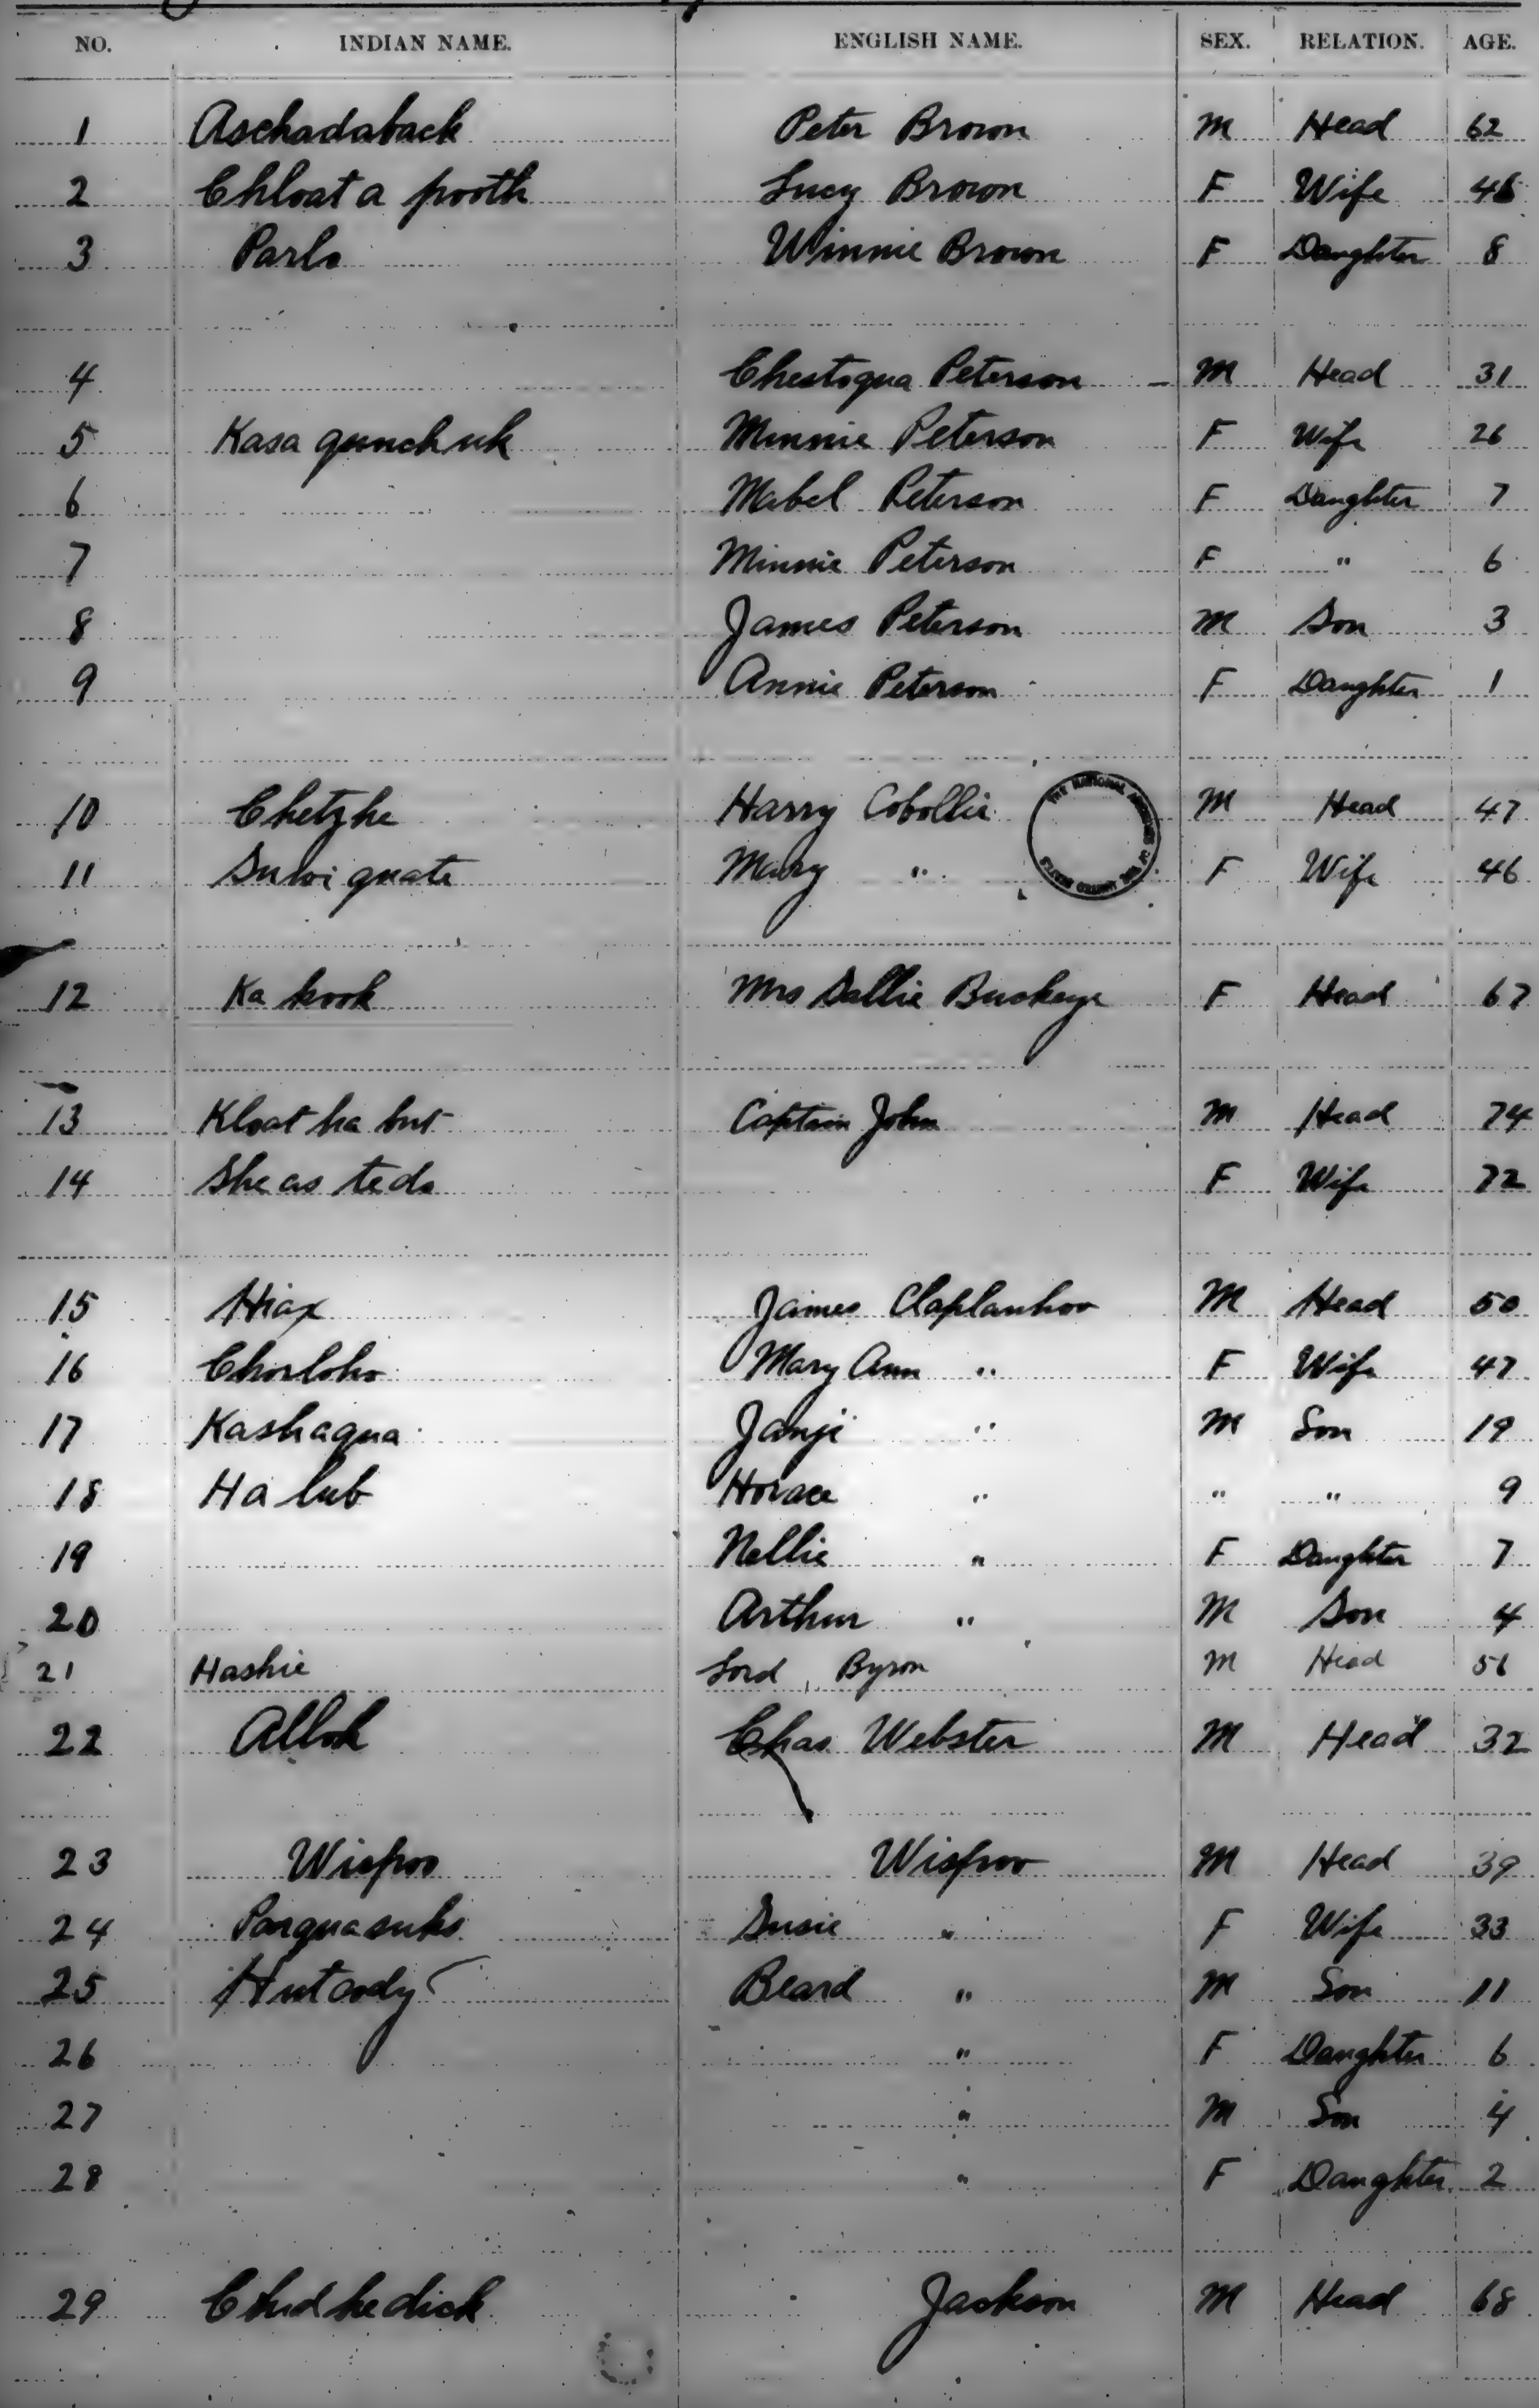 NO. INDIAN NAME. ENGLISH NAME. SEX. RELATION. AGE.
1 Aschadaback Peter Brown M Head 62
2 Chloat a pooth Lucy Brown F Wife
3 Parlo Winnie Brown F Daughter 8
4 Chestoqua Peterson M Head 31
5 Kasa gunchuk Minnie Peterson F Wife 26
6 Mabel Peterson F Daughter 7
7 Minnie Peterson F " 6
8 James Peterson M Son 3
9 Annie Peterson F Daughter 1
10 Chetzhe Harry Cobollie M Head 47
11 Mary " F Wife 46
12 Ka kook Mrs Sallie Buckeye F Head 67
13 Kloat ha but Captain John M Head 74
14 She as tedo F Wife 72
15 Hiax James Claplanhoo M Head 50
16 Chorloho Mary Ann " F Wife 47
17 Kashaqua Janji " M Son 19
18 Ha lub Horace " " " 9
19 Nellie " F Daughter 7
20 Arthur " M Son 4
21 Hashie Lord Byron M Head 56
22 Allok Chas Webster M Head 32
23 Wispoo Wispoo M Head 39
24 Parquasuks Susie " F Wife 33
25 Hutcody Beard " M Son 11
26 " F Daughter 6
27 " M Son 4
28 " F Daughter 2
29 Chud he dick Jackson M Head 68